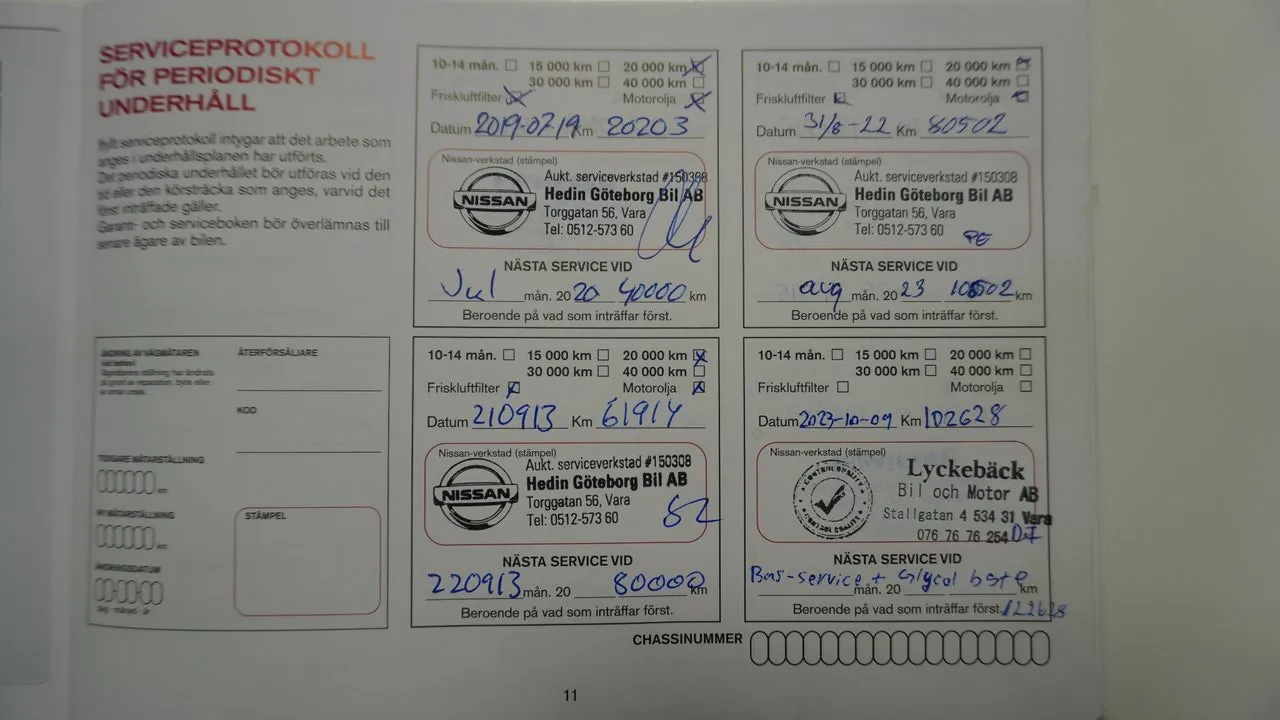 SERVICEPROTOKOLL
FÖR PERIODISKT
UNDERHÅLL
Ifyllt serviceprotokoll intygar att det arbete som
anges i underhållsplanen har utförts.
Det periodiska underhållet bör utföras vid den
tid eller den körsträcka som anges, varvid det
först inträffade gäller.
Garanti- och serviceboken bör överlämnas till
senare ägare av bilen.
10-14 mån. 15 000 km 20 000 km
30 000 km 40 000 km
Friskluftfilter Motorolja
Datum 2019-07-19 Km 20203
Nissan-verkstad (stämpel)
NISSAN
Aukt. serviceverkstad #150308
Hedin Göteborg Bil AB
Torggatan 56, Vara
Tel: 0512-573 60
NÄSTA SERVICE VID
Jul mån. 20 20 40000 km
Beroende på vad som inträffar först.
10-14 mån. 15 000 km 20 000 km
30 000 km 40 000 km
Friskluftfilter Motorolja
Datum 31/8-22 Km 80502
Nissan-verkstad (stämpel)
NISSAN
Aukt. serviceverkstad #150308
Hedin Göteborg Bil AB
Torggatan 56, Vara
Tel: 0512-573 60
PE
NÄSTA SERVICE VID
aug mån. 20 23 100502 km
Beroende på vad som inträffar först.
ÄNDRING AV VÄGMÄTAREN
vid behov!
Vägmätarens ställning har ändrats
på grund av reparation, byte eller
av annan orsak.
ÅTERFÖRSÄLJARE
KOD
TIDIGARE MÄTARSTÄLLNING
km
NY MÄTARSTÄLLNING
km
ÄNDRINGSDATUM
dag - månad - år
STÄMPEL
10-14 mån. 15 000 km 20 000 km
30 000 km 40 000 km
Friskluftfilter Motorolja
Datum 210913 Km 61914
Nissan-verkstad (stämpel)
NISSAN
Aukt. serviceverkstad #150308
Hedin Göteborg Bil AB
Torggatan 56, Vara
Tel: 0512-573 60
NÄSTA SERVICE VID
220913 mån. 20 80000 km
Beroende på vad som inträffar först.
10-14 mån. 15 000 km 20 000 km
30 000 km 40 000 km
Friskluftfilter Motorolja
Datum 2023-10-09 Km 102628
Nissan-verkstad (stämpel)
CONTROL QUALITY
CONTROL QUALITY
Lyckebäck
Bil och Motor AB
Stallgatan 4 534 31 Vara
076 76 76 254
NÄSTA SERVICE VID
Bas-service + Glycol byte
mån. 20 km
Beroende på vad som inträffar först. 122628
CHASSINUMMER
11